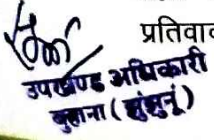 प्रतिवाद
उपखण्ड अधिकारी
बुहाना (झुंझुनूं)